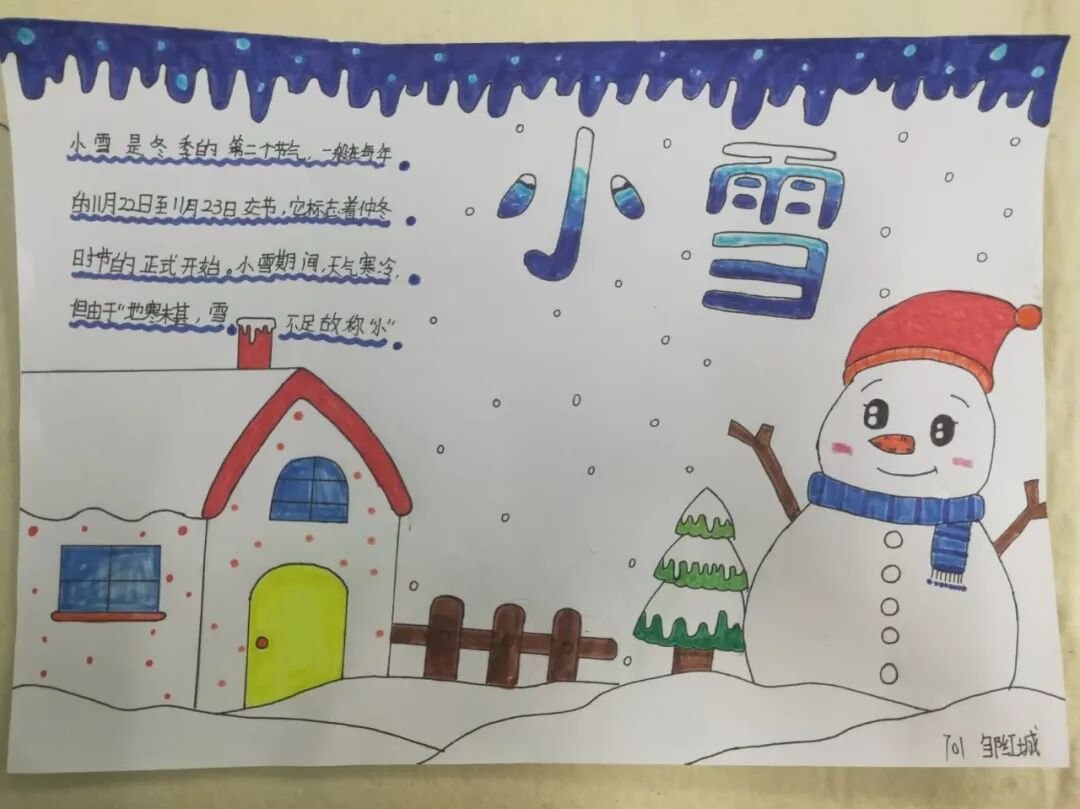 小雪
小雪是冬季的第二个节气，一般在每年
的11月22日至11月23日交节，它标志着仲冬
时节的正式开始。小雪期间，天气寒冷，
但由于“地寒未甚，雪不足故称“小”
701 邹红城